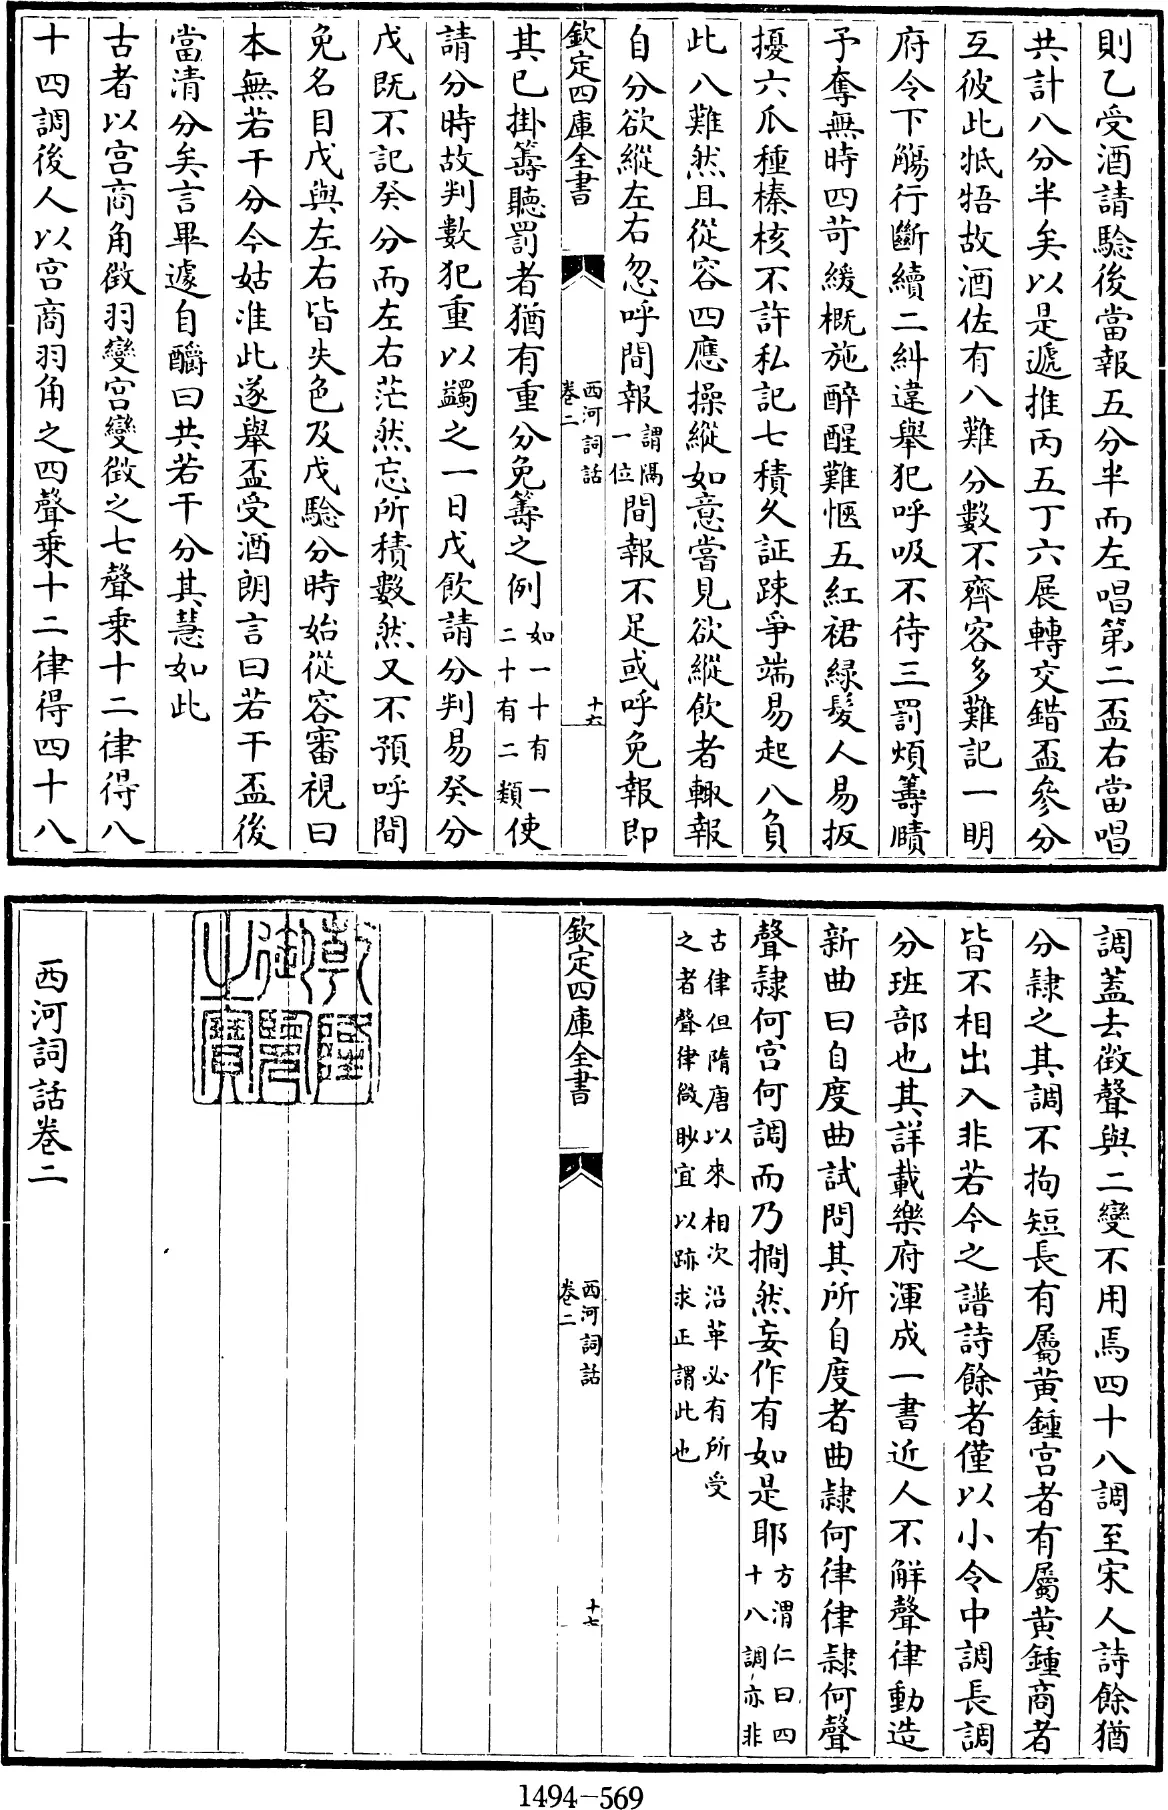 則乙受酒請騐後當報五分半而左唱第二盃右當唱
共計八分半矣以是遞推丙五丁六展轉交錯盃參分
互彼此牴牾故酒佐有八難分數不齊容多難記一明
府令下觴行斷續二糾違舉犯呼吸不待三罰煩籌賾
予奪無時四苛緩概施醉醒難愜五紅裙綠髮人易扳
擾六爪種榛核不許私記七積久証踈爭端易起八負
此八難然且從容四應操縱如意嘗見欲縱飲者輙報
自分欲縱左右忽呼間報謂隔一位間報不足或呼免報即
欽定四庫全書
西河詞話
卷二
十六
其已掛籌聽罰者猶有重分免籌之例如一十有一使二十有二類使
請分時故判數犯重以蠲之一日戊飲請分判易癸分
戊既不記癸分而左右茫然忘所積數然又不預呼間
免名目戊與左右皆失色及戊騐分時始從容審視曰
本無若干分今姑准此遂舉盃受酒朗言曰若干盃後
當清分矣言畢遽自釂曰共若干分其慧如此
古者以宫商角徵羽變宫變徵之七聲乗十二律得八
十四調後人以宫商羽角之四聲乗十二律得四十八
調蓋去徵聲與二變不用焉四十八調至宋人詩餘猶
分隸之其調不拘短長有屬黄鍾宫者有屬黄鍾商者
皆不相出入非若今之譜詩餘者僅以小令中調長調
分班部也其詳載樂府渾成一書近人不解聲律動造
新曲曰自度曲試問其所自度者曲隸何律律隸何聲
聲隸何宫何調而乃撊然妄作有如是耶方渭仁曰四十八調亦非
古律但隋唐以來相次沿革必有所受
之者聲律㣲眇宜以跡求正謂此也
欽定四庫全書
西河詞話
卷二
十七
乾隆御覽之寶
西河詞話卷二
1494-569